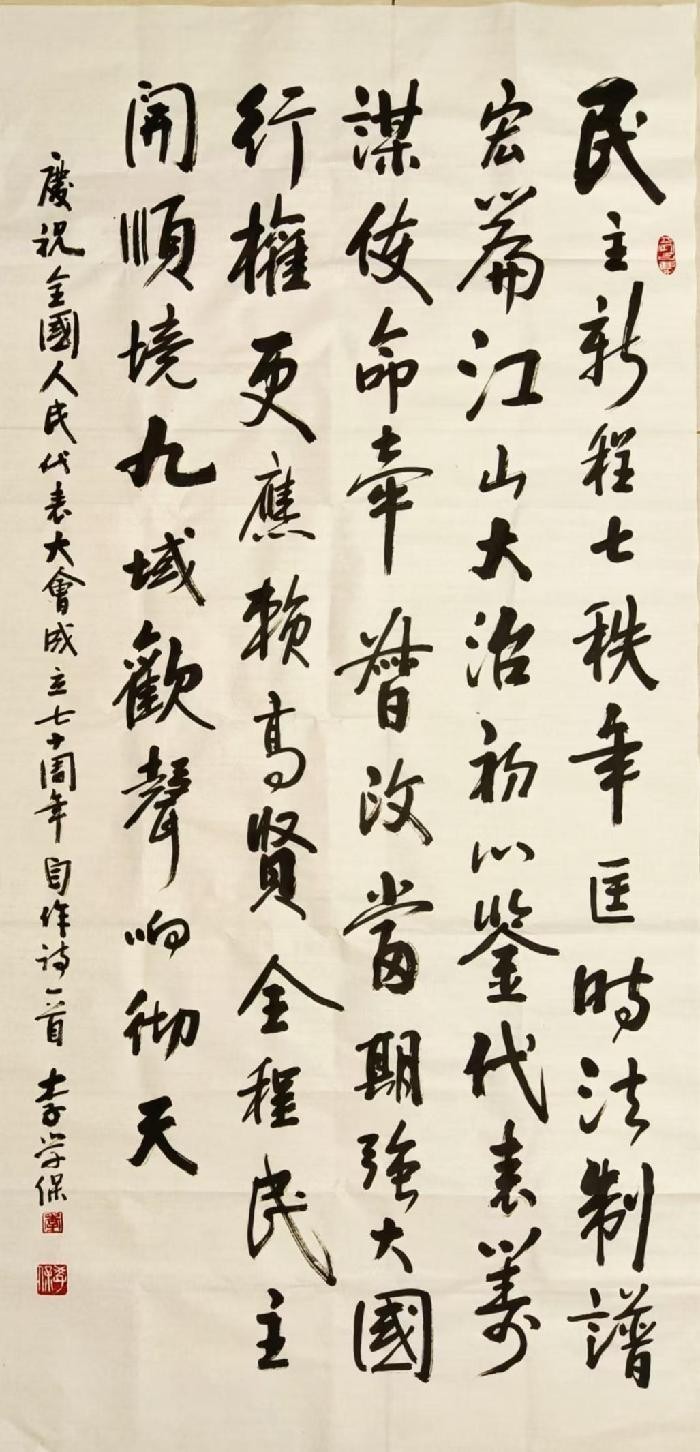 民主新程七秩年匡時法制譜
宏篇江山大治初心鑒代表籌
謀使命牽督政當期強大國
行權更應賴高賢全程民主
開順境九域歡聲响彻天
慶祝全國人民代表大會成立七十周年自作詩一首 李学保